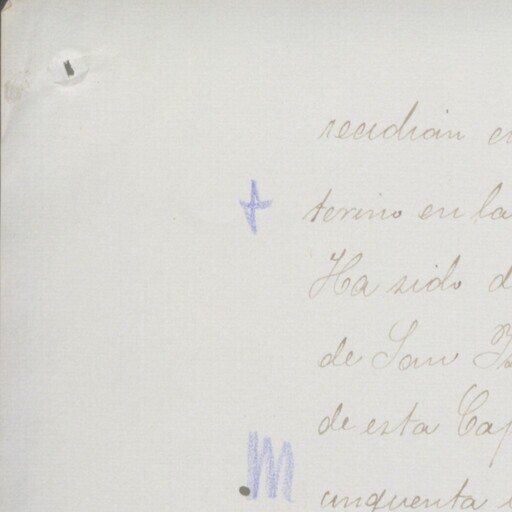 residian en
+ terino en la
Ha sido d
de San Is
de esta Cap
M
cinquenta